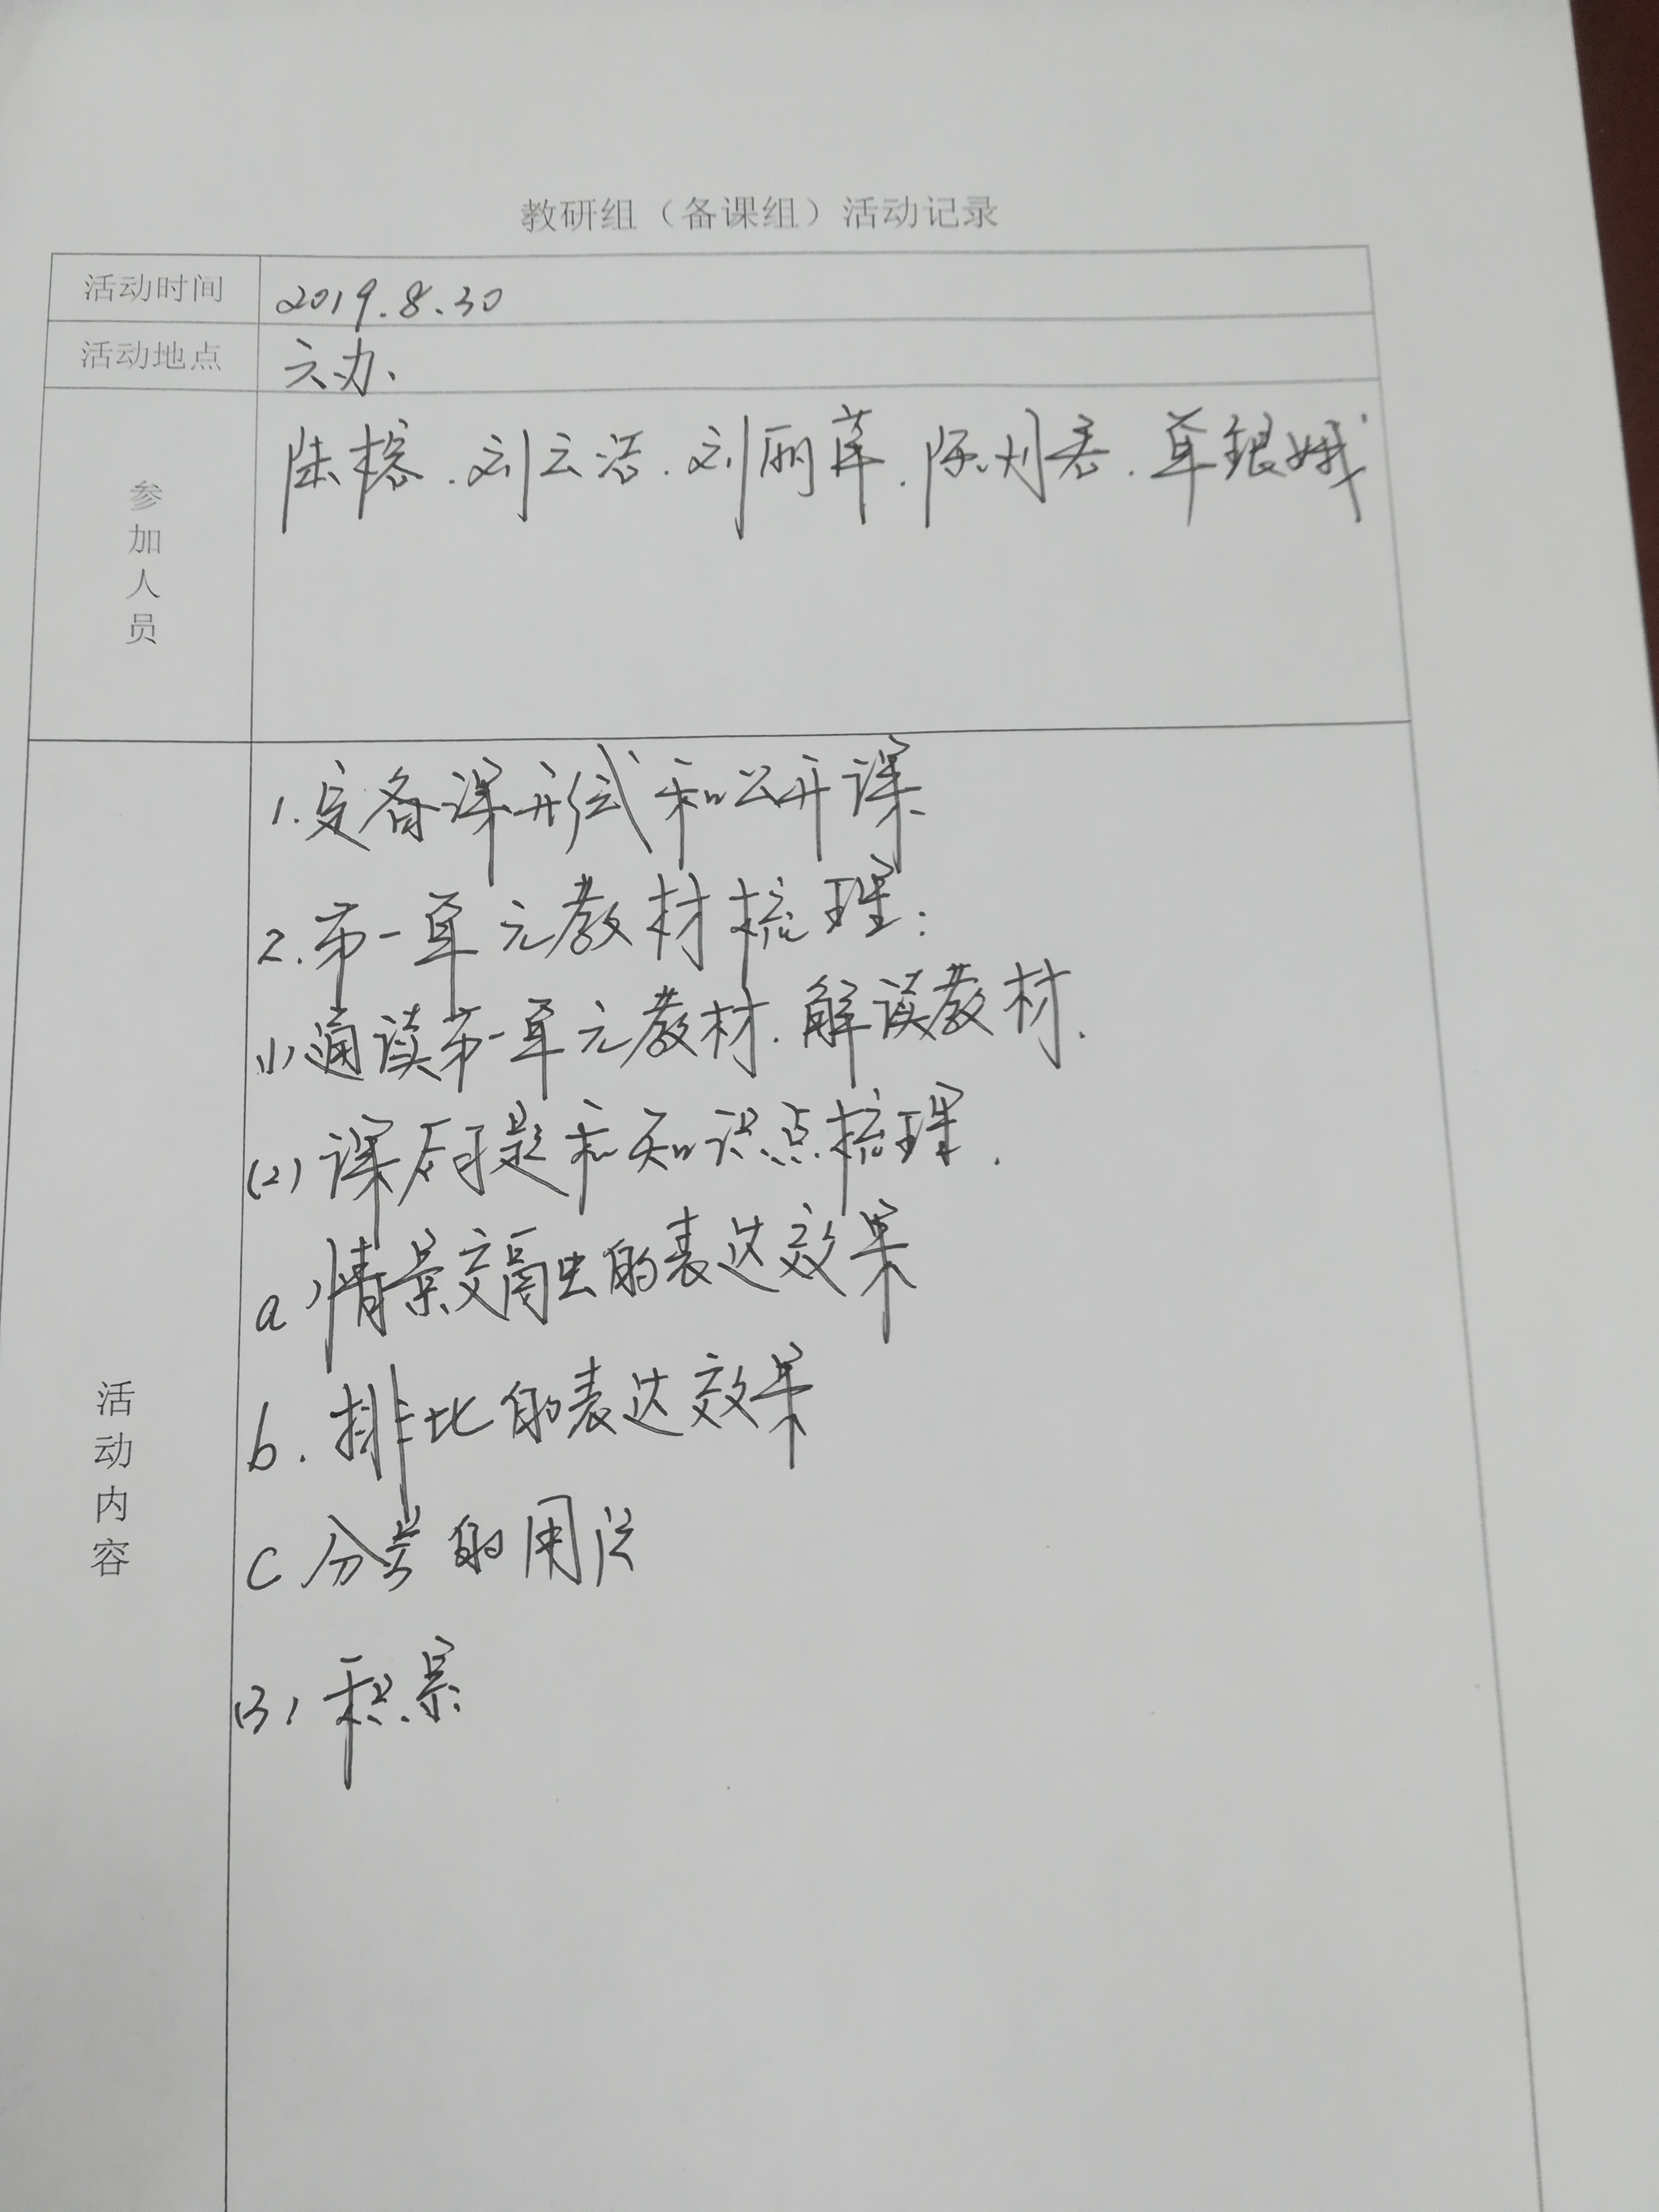 教研组（备课组）活动记录
活动时间 2019.8.30
活动地点 六办
参加人员 陆榕.刘云洁.刘丽萍.陈刘春.覃银娥
活动内容
1.定备课形式和公开课
2.第一单元教材梳理:
(1)通读第一单元教材.解读教材.
(2)课后问题和知识点梳理.
a、情景交融的表达效果
b.排比的表达效果
c.分号的用法
(3)积累